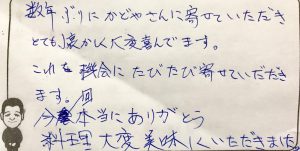 数年ぶりにかどやさんに寄せていただき
とても懐かしく大変喜んでます。
これを機会にたびたび寄せていただき
ます。
今回本当にありがとう
料理大変美味しくいただきました。